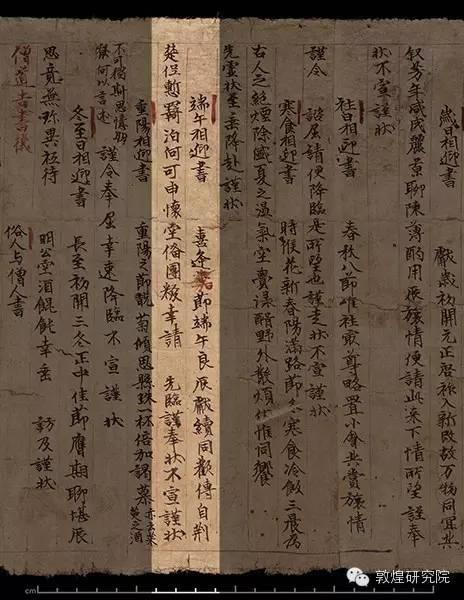 歲日相迎書 獻歲初開元正啓祚入新改故万物同宜共
叙芳年咸成麗景聊陳薄酌用展旅情便請此來下情所望謹奉
狀不宣謹狀
社日相迎書 春秋八節唯社最尊略置小會共賞旅情
謹令 諮屈請便降臨是所望也謹走狀不宣謹狀
寒食相迎書 時候花新春陽滿路節名寒食冷飯三晨為
古人之絕煙除盛夏之溫氣空賫渌醑野外散煩伏惟同饗
先靈狀至垂降赴謹狀
端午相迎書 喜逢嘉節端午良辰獻續同歡傳自荆
楚但慙羇泊何可申懷空俻團糉幸請 先臨謹奉狀不宣謹狀
重陽相迎書 重陽之節翫菊傾思懸珠一杯倍加謁慕 亦云茱萸之酒
不可獨斯思憶朋寮何以言述 謹令奉屈幸速降臨不宣謹狀
冬至日相迎書 長至初開三冬正中佳節膺期聊堪展
思竟無珎異 待 明公空酒餛飩幸垂 訪及謹狀
僧道書儀 俗人与僧人書
cm
敦煌研究院